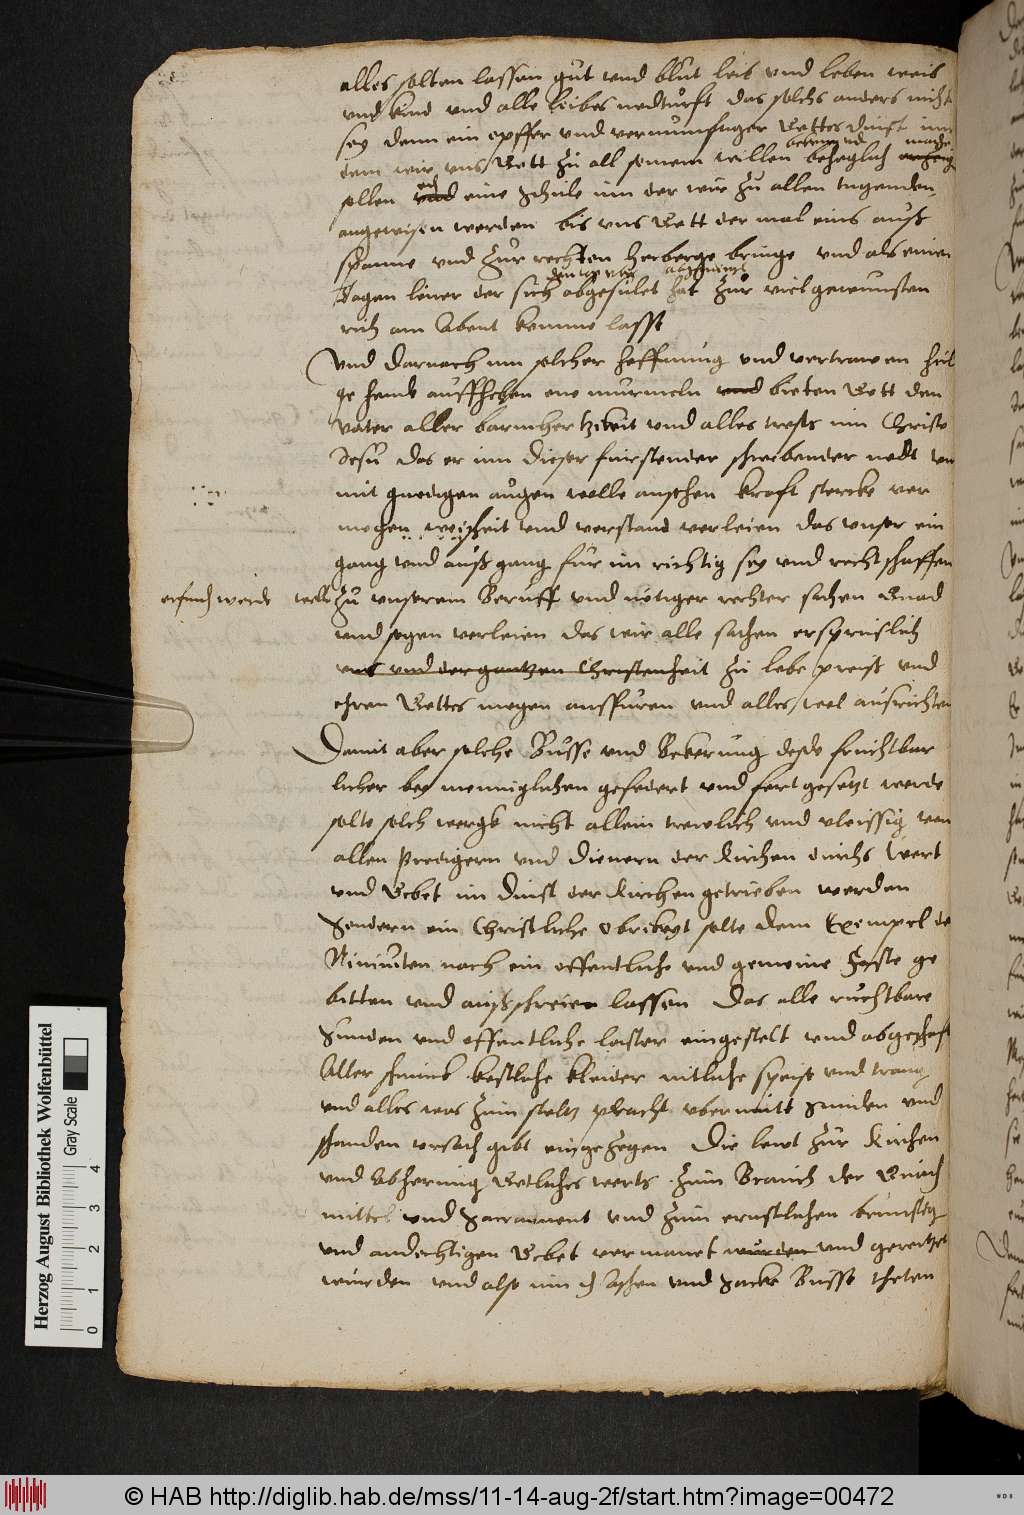 alles solten lassen gut vnd blut leib vnd leben weib
vnd kind vnd alle leibes nodturfft das solchs anders nicht
sey denn ein opffer vnd vernunfftiger Gottes dinst inn
dem wir vns Gott zu all seinem willen beheglich machen
sollen vnd eine Schule inn der wir zu allen tugenden
angewisen werden bis vns Gott der mal eins auß
spanne vnd zur rechten herberge bringe vnd als einen
Tagen loner der sich abgesulet hat zur viel gewunsten
rich am Abent komme lasst
Vnd darnach inn solcher hoffnung vnd vertrawen heil
ge hende auffheben one murmeln vnd bieten Gott den
Vater aller barmhertzikeit vnd alles trosts inn Christo
Jesu das er inn dieser furstender schwebender nodt vns
mit gnedigen augen wolle ansehen kraft stercke ver
mogen weisheit vnd verstand verleien das vnser ein
gang vnd auß gang fur im richtig sey vnd rechtschaffen
erfunden werde wolle zu vnserem Beruff vnd nötiger rechter sachen Gnad
vnd segen verleien das wir alle sachen ersprieslich
vns vnd der gantzen Christenheit zu lobe preiß vnd
ehren Gottes mogen ausfuren vnd alles wol ausrichten
Damit aber solche Busse vnd Bekerung desto fruchtbar
licher bey menniglichen gefodert vnd fort gesetzt werde
solte solch wergk nicht allein trewlich vnd vleissig von
allen Predigern vnd Dienern der Kirchen durchs Wort
vnd Gebet im dinst der Kirchen getrieben werden
Sondern ein Christliche Obrikeyt solte dem Exempel der
Niniuiten nach ein offentliche vnd gemeine Faste ge
bitten vnd außschreien lassen Das alle ruchtbare
Sunden vnd offentliche laster eingestelt vnd abgeschaft
Aller schmuck kostliche kleider nitliche speise vnd tranck
vnd alles was zum stoltz pracht vbermutt Sunden vnd
schanden vrsach gibt eingezogen Die lewt zur Kirchen
vnd Abhorung Gotliches worts zum Brauch der Gnad
mittel vnd Sacrament vnd zum ernstlichen brunstig
vnd andechtigen Gebet vermanet wurden vnd gereitzet
wurden vnd also inn der Aschen vnd Sacke Busse theten
Herzog August Bibliothek Wolfenbüttel
Gray Scale
0 1 2 3 4
© HAB http://diglib.hab.de/mss/11-14-aug-2f/start.htm?image=00472